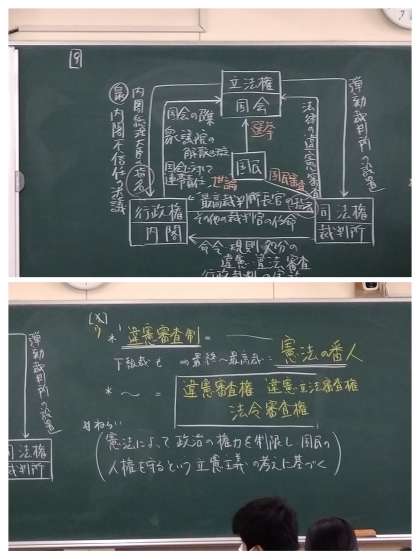 9
立法権
国会
弾劾裁判所の設置
法律の違憲審査
選挙
国会の召集
衆議院の解散の決定
国会に対する連帯責任
内閣総理大臣の指名
衆 内閣不信任の決議
国民
国民審査
世論
行政権
内閣
最高裁判所長官の指名
その他の裁判官の任命
司法権
裁判所
命令、規則、処分の
違憲・違法審査
弾劾裁判所の設置
司法権
裁判所
違憲審査制 =
下級裁も ⇒最終〜最高裁 : 憲法の番人
* 〜 = 違憲審査権 違憲立法審査権
法令審査権
#ねらい
憲法によって政治の権力を制限し、国民の
人権を守るという立憲主義の考えに基づく